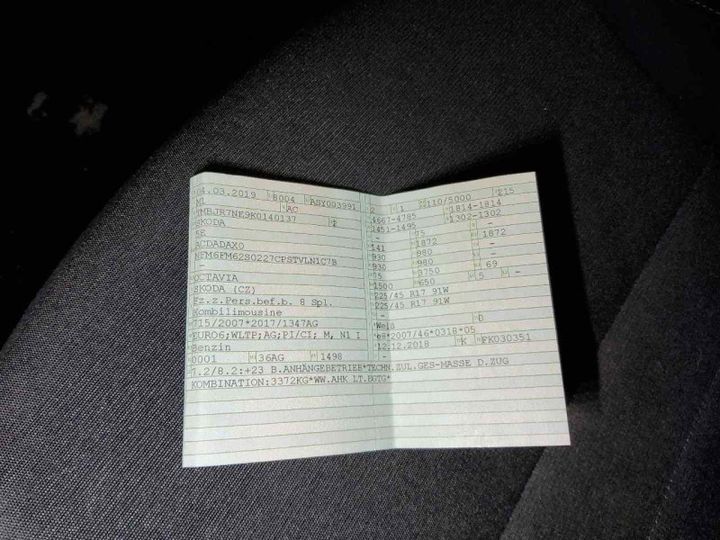 04.03.2019 8004 ASY003991
M1 AC
TMBJR7NE9K0140137 2
SKODA
5E
ACDADAX0
NFM6FM62S0227CPSTVLN1C7B
-
OCTAVIA
SKODA (CZ)
Fz.z.Pers.bef.b. 8 Spl.
Kombilimousine
715/2007*2017/1347AG
EURO6;WLTP;AG;PI/CI; M, N1 I
Benzin
0001 36AG 1498
2 1 110/5000 215
4667-4785 1814-1814
1451-1495 1302-1302
- 75 -
141 1872 1872
930 980 -
930 980 -
75 3750 69
1500 650 5 -
225/45 R17 91W
225/45 R17 91W
-
Weiß 0
e8*2007/46*0318*05
12.12.2018 K FK030351
-
7.2/8.2:+23 B.ANHÄNGEBETRIEB*TECHN.ZUL.GES-MASSE D.ZUG
KOMBINATION:3372KG*WW.AHK LT.EGTG*